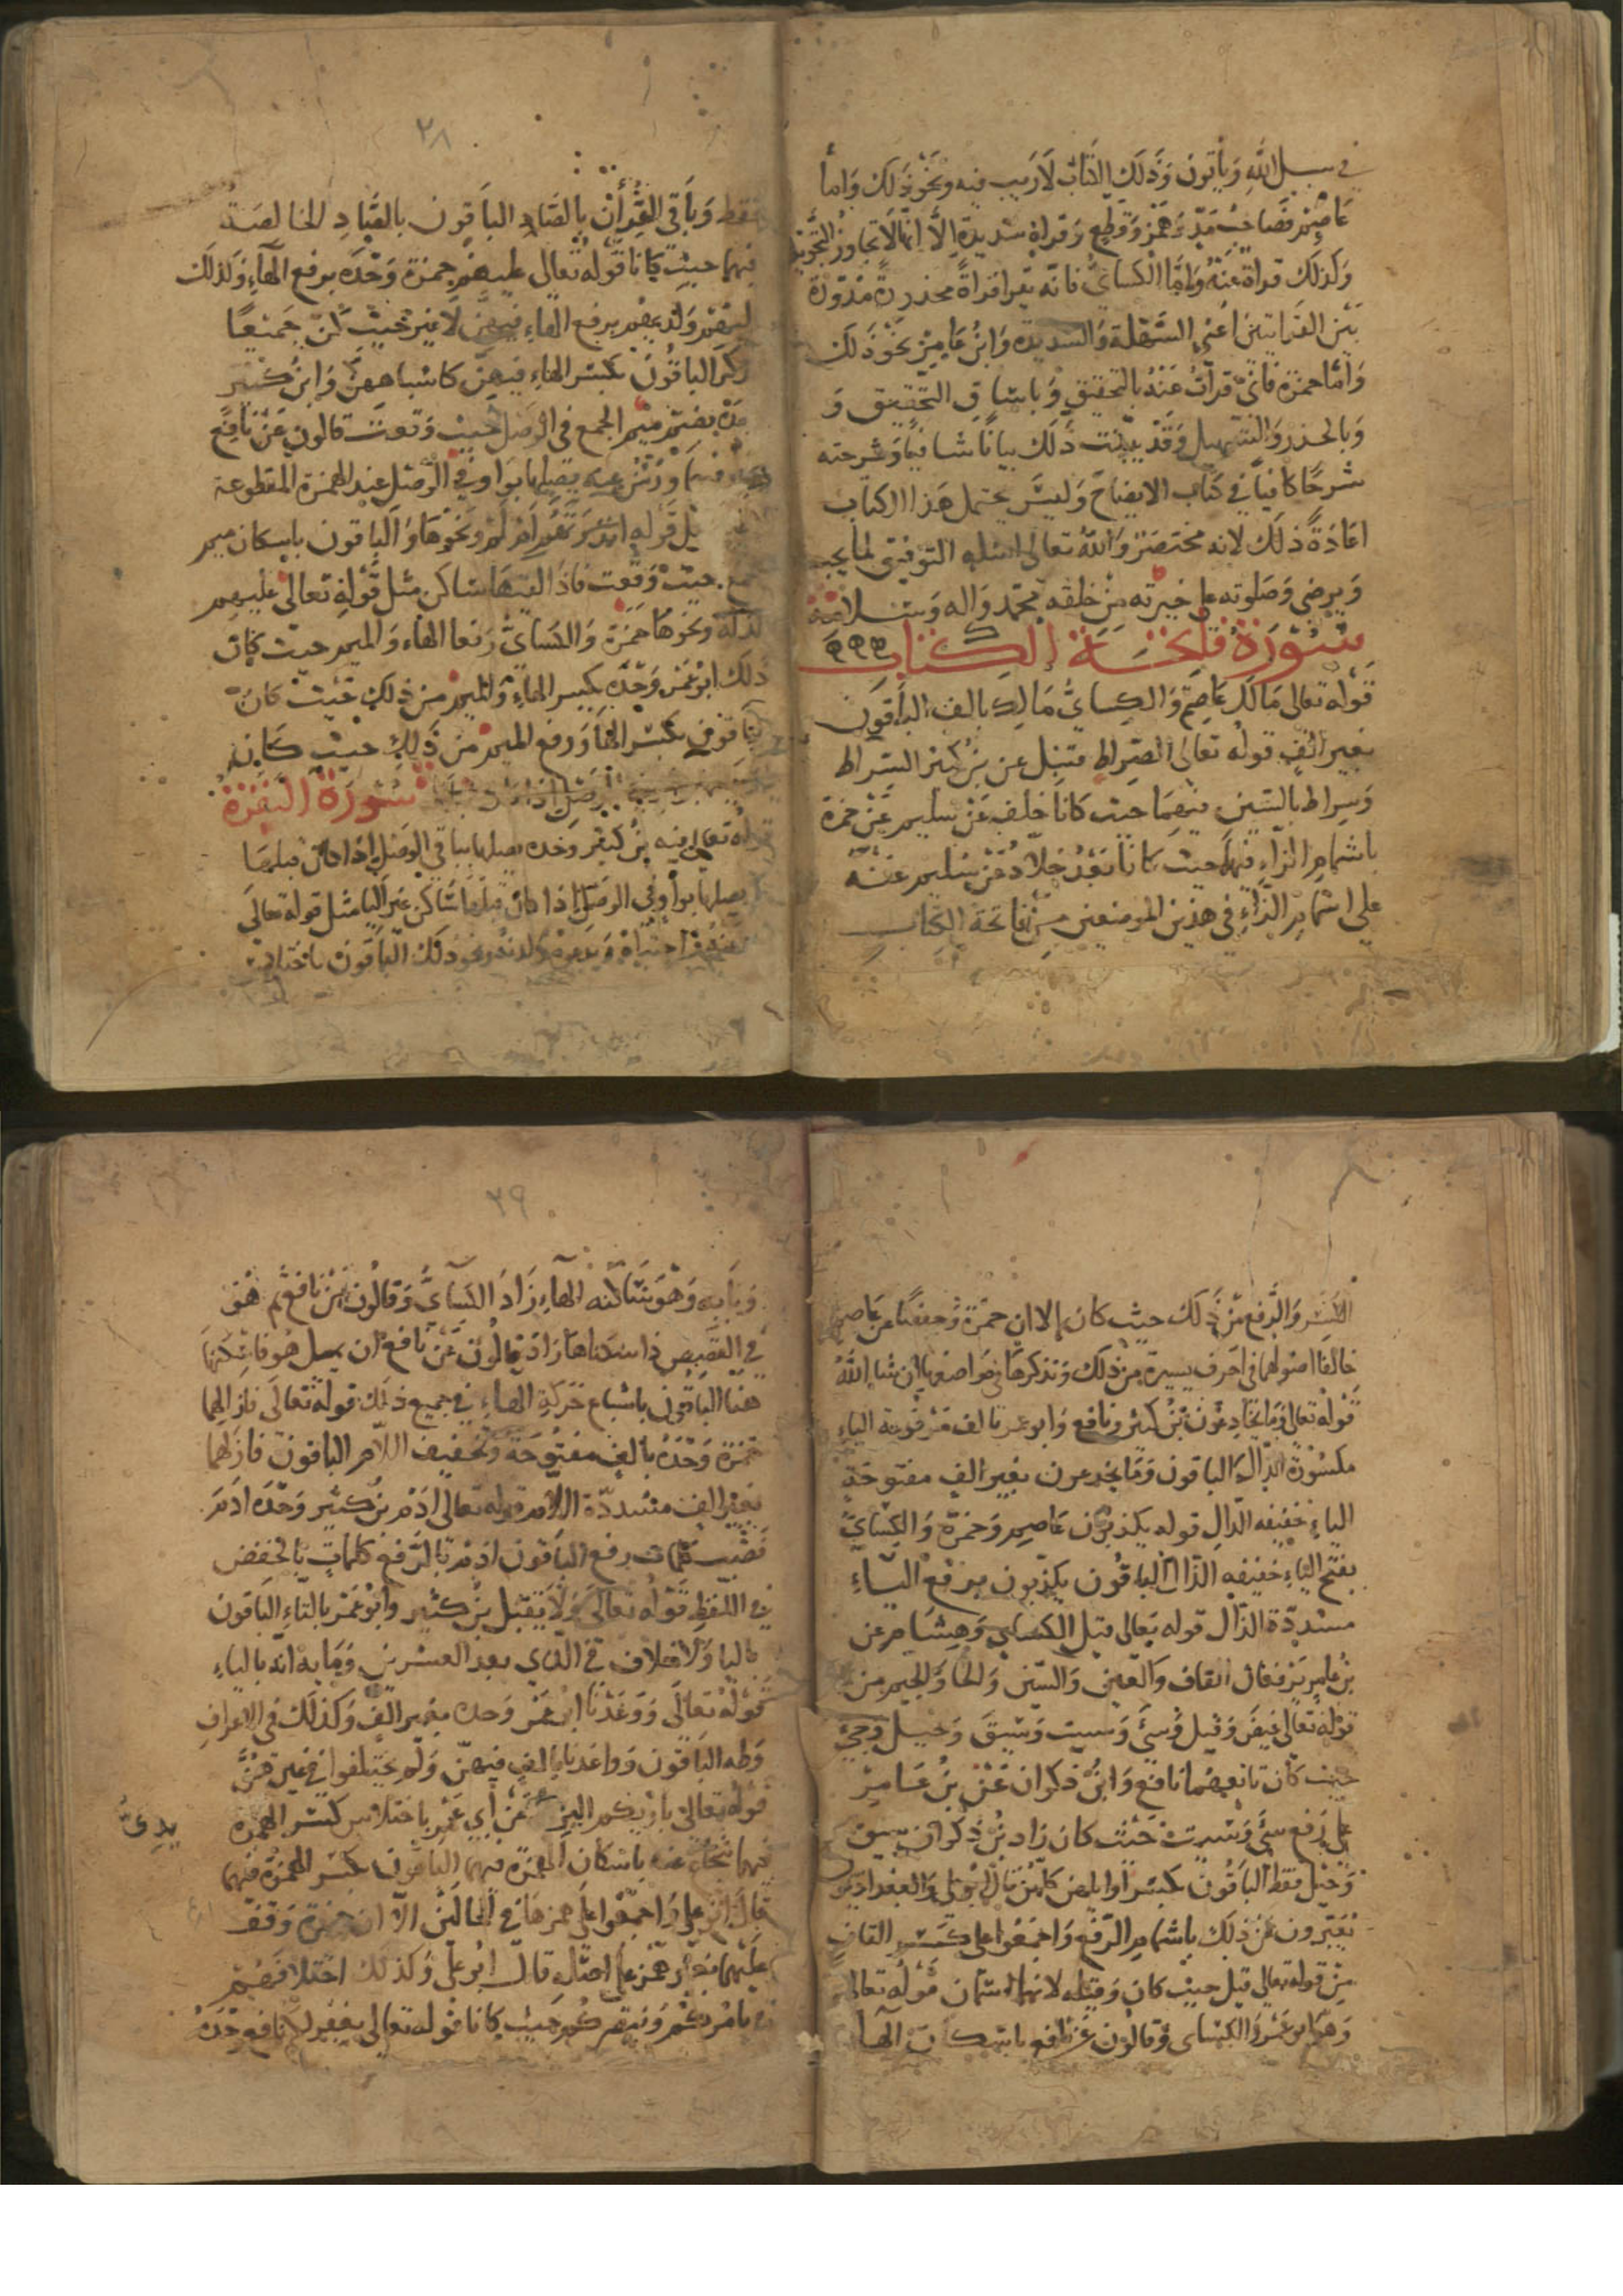 في سبيل الله ويأتون وذلك الكتاب لا ريب فيه ونحو ذلك وأما
عاصم فصاحب مد وهمز وقطع وقراة شديدة إلا أنها لا تجاوز التجويد
وكذلك قراة عنه وأما الكسائي فانه يقرا قراة محدرة مدورة
بين القرايتين أعني السهلة والشديدة وابن عامر نحو ذلك
وأما حمزة فاني قرأت عنه بالتحقيق وباشباق التحقيق و
وبالحدر والتسهيل وقد بينت ذلك بيانا شافيا وشرحته
شرحا كافيا في كتاب الايضاح وليس يحتمل هذا الكتاب
اعادة ذلك لانه مختصر والله تعالى اسله التوفيق لما يحب
ويرضى وصلوته على خيرته من خلقه محمد واله وسلامه
سورة فاتحة الكتاب
قوله تعالى مالك عاصم والكسائي مالك بالف الباقون
بغير الف قوله تعالى الصراط قنبل عن بن كثير السراط
وسراط بالسين فيهما حيث كانا خلف عن سليم عن حمزة
باشمام الزاء فيهما حيث كانا بعد خلاد عن سليم عنه
على اشمام الزاء في هذين الموضعين من فاتحة الكتاب
٢٨
فقط وباقي القرأن بالصاد الباقون بالصاد الخالصة
فيهما حيث كانا قوله تعالى عليهم حمزة وحده برفع الهاء وكذلك
اليهم ولديهم برفع الهاء فيهن لا غير حيث كن جميعا
وكسر الباقون بكسر الهاء فيهن كاشباههن وابن كثير
وحده بضم ميم الجمع في الوصل حيث وقعت قالون عن نافع
ورش عنه يصلها بواو في الوصل عند الهمزة المقطوعة
مثل قوله انذرتهم ام لم ونحوها والباقون باسكان ميم
الجمع حيث وقعت فاذا لقيها ساكن مثل قوله تعالى عليهم
الذلة ونحوها حمزة والكسائي رفعا الهاء والميم حيث كان
ذلك ابو عمر وحده بكسر الهاء والميم من ذلك حيث كان
الباقون بكسر الها ورفع الميم من ذلك حيث كان
سورة البقرة
قوله تعالى فيه بن كثير وحده يصلها بيا في الوصل إذا كان قبلها
يا ويصلها بواو في الوصل إذا كان قبلها ساكن غير اليا مثل قوله تعالى
ونحو ذلك الباقون باختلاس
الكسر والرفع من ذلك حيث كان إلا ان حمزة وحفصا عن عاصم
خالفا اصولهما في احرف يسيرة من ذلك ونذكرها في مواضعها إن شا الله
قوله تعالى وما يخادعون بن كثير ونافع وابو عمر بالف مرفوعة الياء
مكسورة الدال الباقون وما يخدعون بغير الف مفتوحة
الياء خفيفه الدال قوله يكذبون عاصم وحمزة والكسائي
بفتح الياء خفيفه الذال الباقون يكذبون برفع الياء
مشددة الذال قوله تعالى قيل الكسائي وهشام عن
بن عامر يرفعان القاف والغين والسين والحا والجيم من
قوله تعالى غيض وقيل وسيء وسيت وسيق وحيل وجيء
حيث كان تابعهما نافع وابن ذكوان عن بن عامر
على رفع سيء وسيت حيث كان زاد بن ذكوان سيق
وحيل فقط الباقون بكسر أوايلهن كلهن قال ابو علي والبغداديون
يعبرون عن ذلك باشمام الرفع واجمعوا على كسر القاف
من قوله تعالى قيل حيث كان وقيله لانهما اسمان قوله تعالى
وهو ابو عمر والكسائي وقالون عن نافع باسكان الهاء
٢٩
وبابه وهو ساكنه الهاء زاد الكسائي وقالون عن نافع ثم هو
في القصص فاسكناها زاد قالون عن نافع ان يمل هو فاسكنها
هنا الباقون باشباع حركة الهاء في جميع ذلك قوله تعالى فازالهما
حمزة وحده بالف مفتوحة وتخفيف اللام الباقون فازلهما
بغير الف مشددة اللام قوله تعالى ادم بن كثير وحده ادم
نصب كلمات رفع الباقون ادم بالرفع كلمات بالخفض
في اللفظ قوله تعالى ولا يقبل بن كثير وابو عمر بالتاء الباقون
باليا ولا خلاف في الذي بعد العشرين ومايه انه بالياء
قوله تعالى ووعدنا ابو عمر وحده بغير الف وكذلك في الاعراف
وطه الباقون وواعدنا بالف فيهن ولم يختلفوا في غيرهن
قوله تعالى بارئكم اليزيدي عن أبي عمر باختلاس كسر الهمزة
فيهما شجاع عنه باسكان الهمزة فيهما الباقون بكسر الهمزة فيهما
قال ابو علي واجمعوا على همزها في الحالين الا ان حمزة وقف
عليهما بغير همز على اصله قال ابو علي وكذلك اختلافهم
في يامركم وينصركم حيث كانا قوله تعالى يغفر لكم نافع وحده